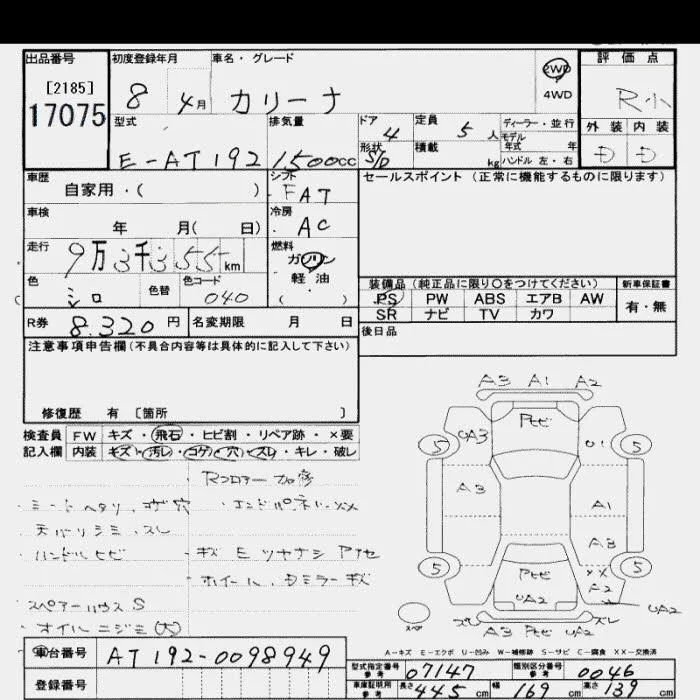 出品番号
[2185]
17075
初度登録年月
8 4月
車名・グレード
カリーナ
2WD
4WD
評価点
R小
外装 内装
D D
型式
E-AT192
排気量
1500cc
ドア
4
形状
S/D
定員
5人
積載
kg
ディーラー・並行
モデル
年式 年
ハンドル 左・右
車歴
自家用・( )
シフト
FAT
車検
年 月( 日)
冷房
AC
走行
9万3千355km
燃料
ガソリン
軽・油
( )
色
シロ
色替
色コード
040
R券
8.320円
名変期限 月 日
セールスポイント(正常に機能するものに限ります)
装備品(純正品に限り○をつけてください)
PS PW ABS エアB AW
SR ナビ TV カワ
新車保証書
有・無
後日品
注意事項申告欄(不具合内容等は具体的に記入して下さい)
修復歴 有 〔箇所 〕
検査員
記入欄
FW キズ・飛石・ヒビ割・リペア跡・×要
内装 キズ・汚レ・コゲ・穴・スレ・キレ・破レ
・Rフロアー 加修
・シートヘタリ、コゲ穴
・エンドパネル・XX
天バリシミ、スレ
・ハンドルヒビ
・キズ E ツヤナシ アセ
・ホイール、Dミラーキズ
スペアーハウス S
・オイルニジミ(大)
A3 A1 A2
Pヒビ
5 UA3 U1 5
A3
A1
A3
5 Pヒビ XX 5
UA2 A2
UA2
スペ
スレ スレ
A3 Pヒビ UA2
A-キズ E-エクボ U-凹み W-補修跡 S-サビ C-腐食 XX-交換済
車台番号
AT192-0098949
登録番号
型式指定番号
参考
07147
類別区分番号
参考
0046
車庫証明用
参考
長さ 445cm 幅 169cm 高さ 139cm